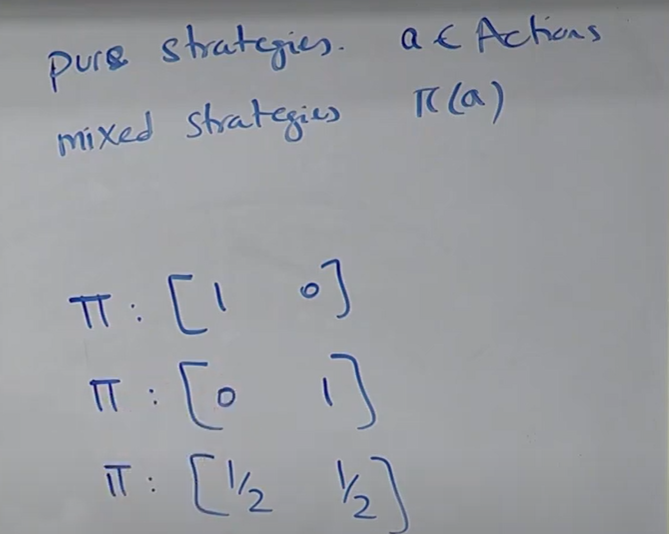 pure strategies. a ∈ Actions
mixed strategies π(a)
π : [1 0]
π : [0 1]
π : [1/2 1/2]